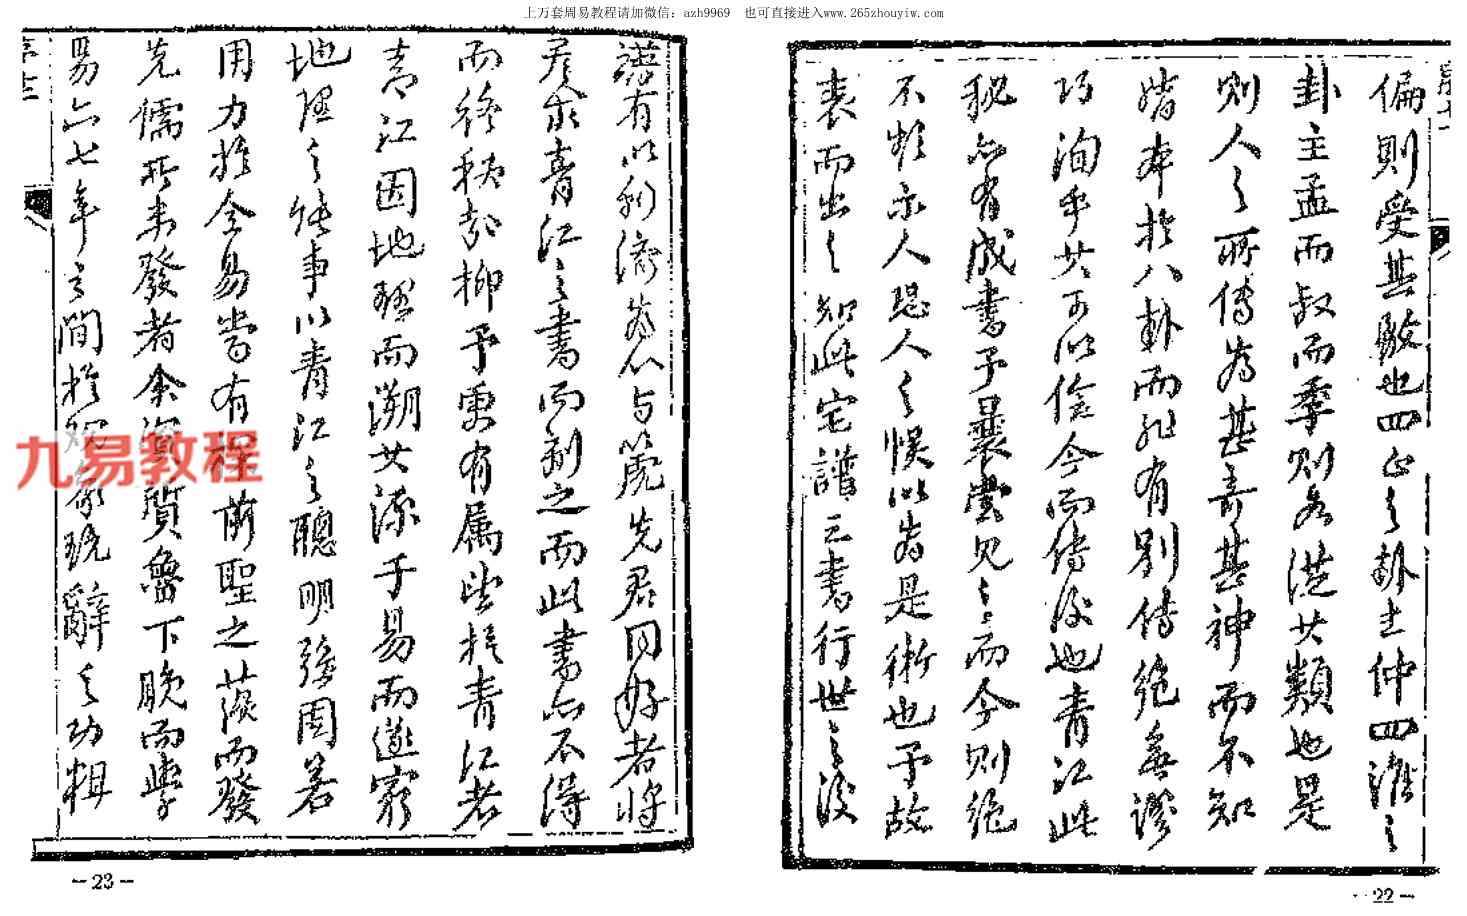 上万套周易教程请加微信：azh9969　也可直接进入www.265zhouyiw.com
偏則受其殺也四正之卦主仲四維之
卦主孟而叔而季則各從其類也是
則人之所傳為甚奇甚神而不知
皆本於八卦而非有別傳絕無謬
巧洵乎其可以信今而傳後也青江此
秘亦有成書予曩嘗見之而今則絕
不輕示人恐人之悞以為是術也予故
表而出之知此宅譜三書行世之後
諸有以利濟為心与箎先君同好者將
羣求青江之書而刻之而此書亦不得
而終秘歟抑予更有属望於青江者
青江因地理而溯其源于易而遂窮
地理之能事以青江之聰明強固若
用力於全易當有從前聖之蘊而發
先儒所未發者余資質魯下晚而學
易六七年之間於觀象玩辭之功粗
九易教程
-23-
-22-